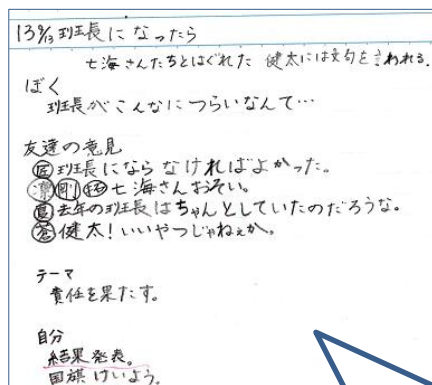 班長になったら
七海さんたちとはぐれた 健太には文句を言われる。
ぼく
班長がこんなにつらいなんて…
友達の意見
匠 班長にならなければよかった。
凛 剛 七海さんおそい。
去年の班長はちゃんとしていたのだろうな。
蒼 健太!いいやつじゃねぇか。
テーマ
責任を果たす。
自分
結果発表。
国旗けいよう。